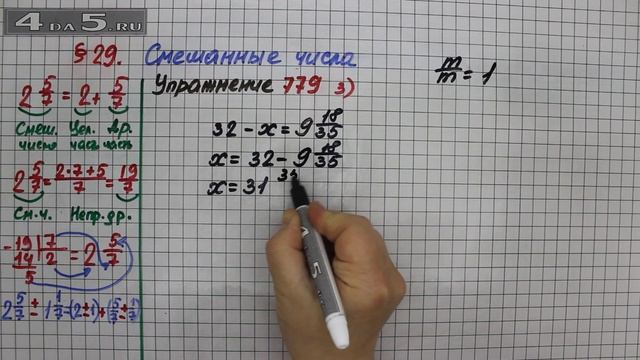 4DA5.RU
§ 29. Смешанные числа
Упражнение 779 3)
m/m = 1
2 5/7 = 2 + 5/7
Смеш. Цел. Др.
число часть часть
2 5/7 = (2·7+5)/7 = 19/7
См.ч. Непр.др.
19 | 7 = 2 5/7
- 14 | 2
5
2 5/7 ± 1 1/7 = (2±1) + (5/7 ± 1/7)
32 - x = 9 18/35
x = 32 - 9 18/35
x = 31 35
4DA5